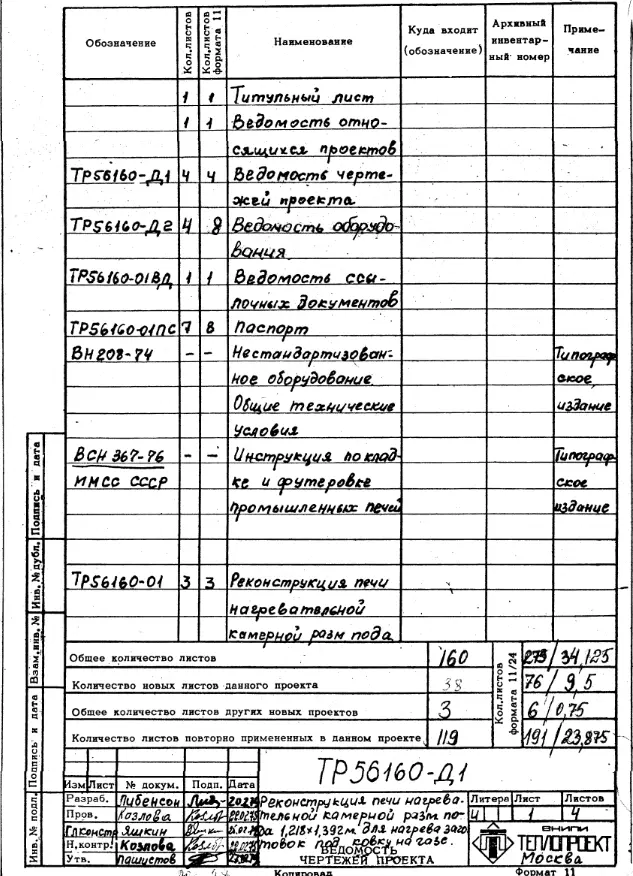 Обозначение Кол.листов Кол.листов формата 11 Наименование Куда входит (обозначение) Архивный инвентар-ный номер Приме-чание
1 1 Титульный лист
1 1 Ведомость отно-
сящихся проектов
ТР56160-Д1 4 4 Ведомость черте-
жей проекта
ТР56160-Д2 4 8 Ведомость оборудо-
вания
ТР56160-01ВД 1 1 Ведомость ссы-
лочных документов
ТР56160-01ПС 7 8 Паспорт
ВН208-74 – – Нестандартизован- Типограф
ное оборудование. ское
Общие технические издание
условия
ВСН 367-76 – – Инструкция по клад- Типограф
ИМСС СССР ке и футеровке ское
промышленных печей издание
ТР56160-01 3 3 Реконструкция печи
нагревательной
камерной разм пода
Общее количество листов 160 Кол.листов формата 11/24 273/34,125
Количество новых листов данного проекта 38 76/9,5
Общее количество листов других новых проектов 3 6/0,75
Количество листов повторно примененных в данном проекте 119 191/23,875
ТР56160-Д1
Изм Лист № докум. Подп. Дата
Разраб. Либенсон Реконструкция печи нагрева- Литера Лист Листов
Пров. Козлова тельной камерной разм по- И 1 4
Гл.констр Яшкин да 1,218х1,392м. для нагрева заго ВНИПИ
Н.контр. Козлова товок под ковку на газе. ТЕПЛОПРОЕКТ
Утв. Пашустов ВЕДОМОСТЬ ЧЕРТЕЖЕЙ ПРОЕКТА Москва
Копировал Формат 11
Инв. № подл. Подпись и дата Взам.инв. № Инв. № дубл. Подпись и дата